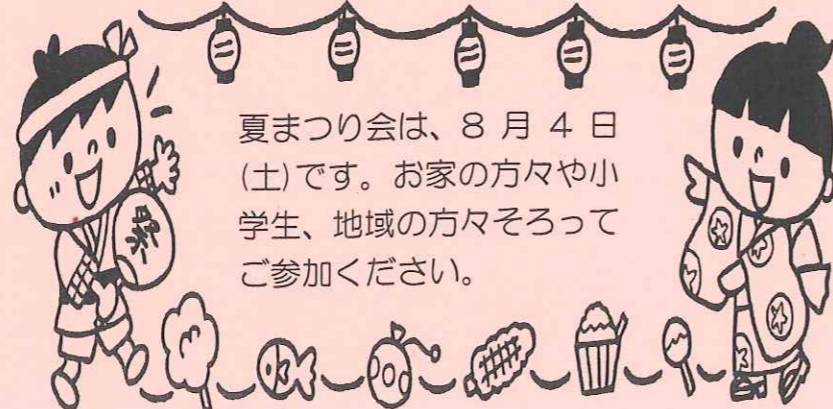 夏まつり会は、８月４日
(土)です。お家の方々や小
学生、地域の方々そろって
ご参加ください。
祭